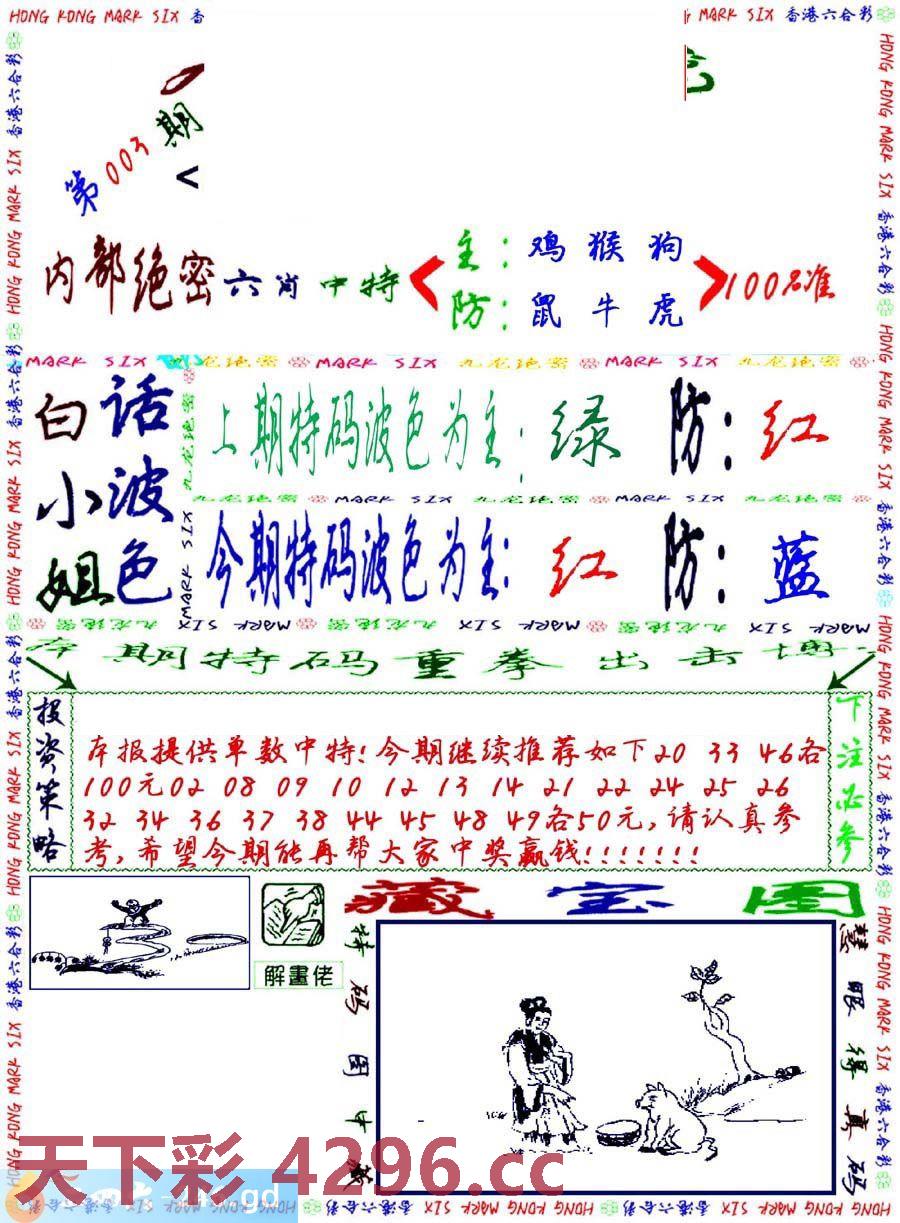 HONG KONG MARK SIX 香
MARK SIX 香港六合彩
第003期
内部绝密六肖中特
主：鸡猴狗
防：鼠牛虎
100%准
MARK SIX 九龙绝密 MARK SIX 九龙绝密 MARK SIX 九龙绝密
白话小姐
波色
上期特码波色为主：绿 防：红
九龙绝密 MARK SIX 九龙绝密 MARK SIX 九龙绝密
今期特码波色为主：红 防：蓝
九龙绝密 MARK SIX 九龙绝密 MARK SIX 九龙绝密 MARK SIX
期特码重拳出击
投资策略
本报提供单数中特!今期继续推荐如下20 33 46各
100元02 08 09 10 12 13 14 21 22 24 25 26
32 34 36 37 38 44 45 48 49各50元,请认真参
考,希望今期能再帮大家中奖赢钱!!!!!!!
下注必参
藏宝图
解畫佬
特码图中藏
慧眼得真码
天下彩 4296.cc
gd
HONG KONG MARK SIX 香港六合彩